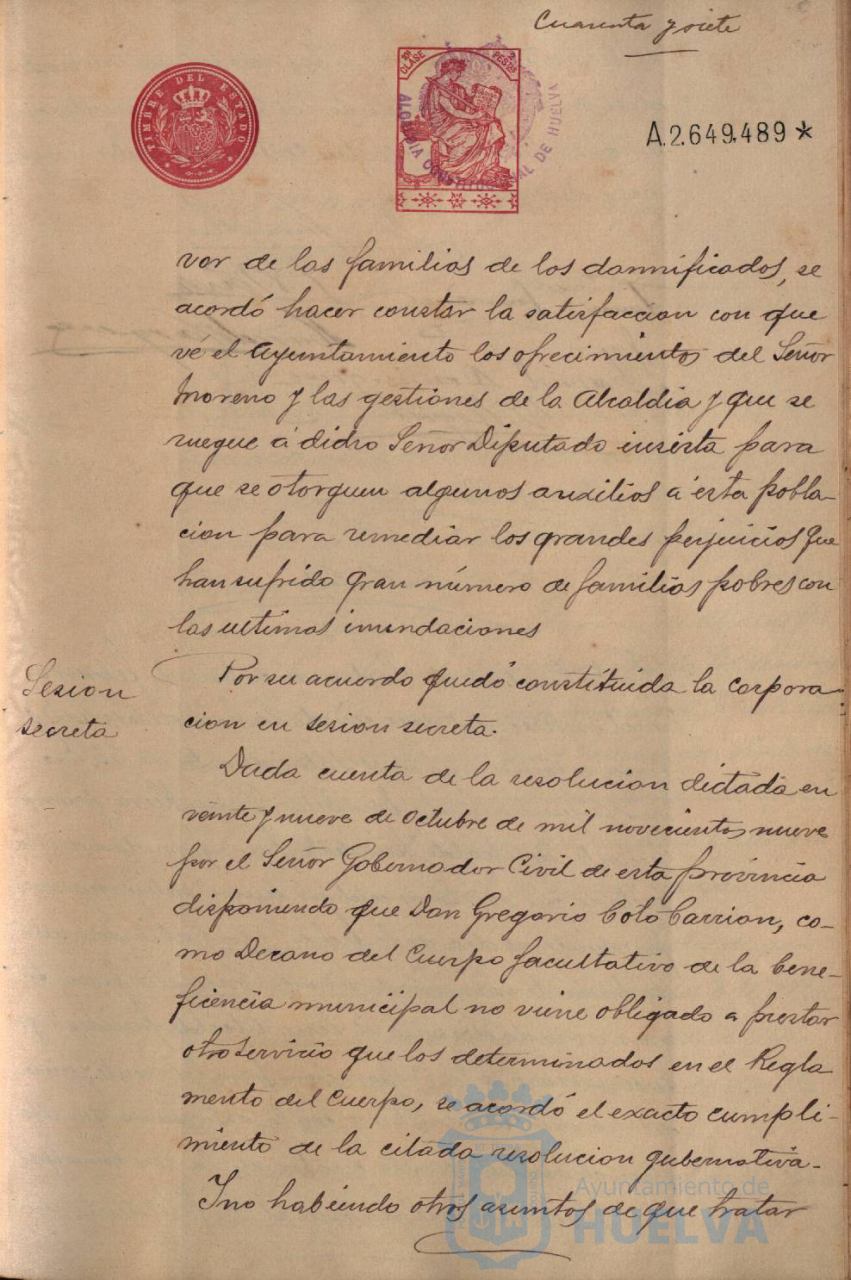 Cuarenta y siete
TIMBRE DEL ESTADO
10ª CLASE
2 PESTAS
ALCALDIA CONSTITUCIONAL DE HUELVA
A.2.649.489 *
vor de las familias de los damnificados, se
acordó hacer constar la satisfaccion con que
vé el Ayuntamiento los ofrecimientos del Señor
Moreno y las gestiones de la Alcaldia y que se
ruegue á dicho Señor Diputado insista para
que se otorguen algunos auxilios á esta pobla-
cion para remediar los grandes perjuicios que
han sufrido gran número de familias pobres con
las ultimas inundaciones
Sesion
secreta
Por su acuerdo quedó constituida la corpora-
cion en sesion secreta.
Dada cuenta de la resolucion dictada en
veinte y nueve de octubre de mil novecientos nueve
por el Señor Gobernador Civil de esta provincia
disponiendo que Don Gregorio Coto Carrion, co-
mo Decano del Cuerpo facultativo de la bene-
ficencia municipal no viene obligado a prestar
otro servicio que los determinados en el Regla
mento del Cuerpo, se acordó el exacto cumpli-
miento de la citada resolucion gubernativa.
Y no habiendo otros asuntos de que tratar
Ayuntamiento de
HUELVA